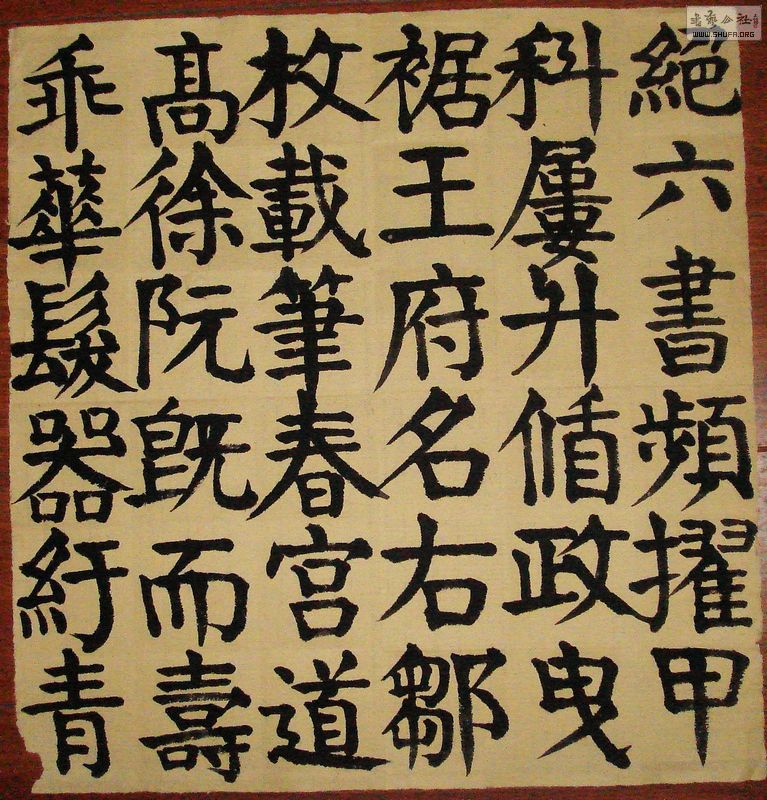 絕六書頻擢甲
科屢升循政曳
裾王府名右鄒
枚載筆春宮道
高徐阮既而壽
乖華髮器紆青
WWW.SHUFA.ORG